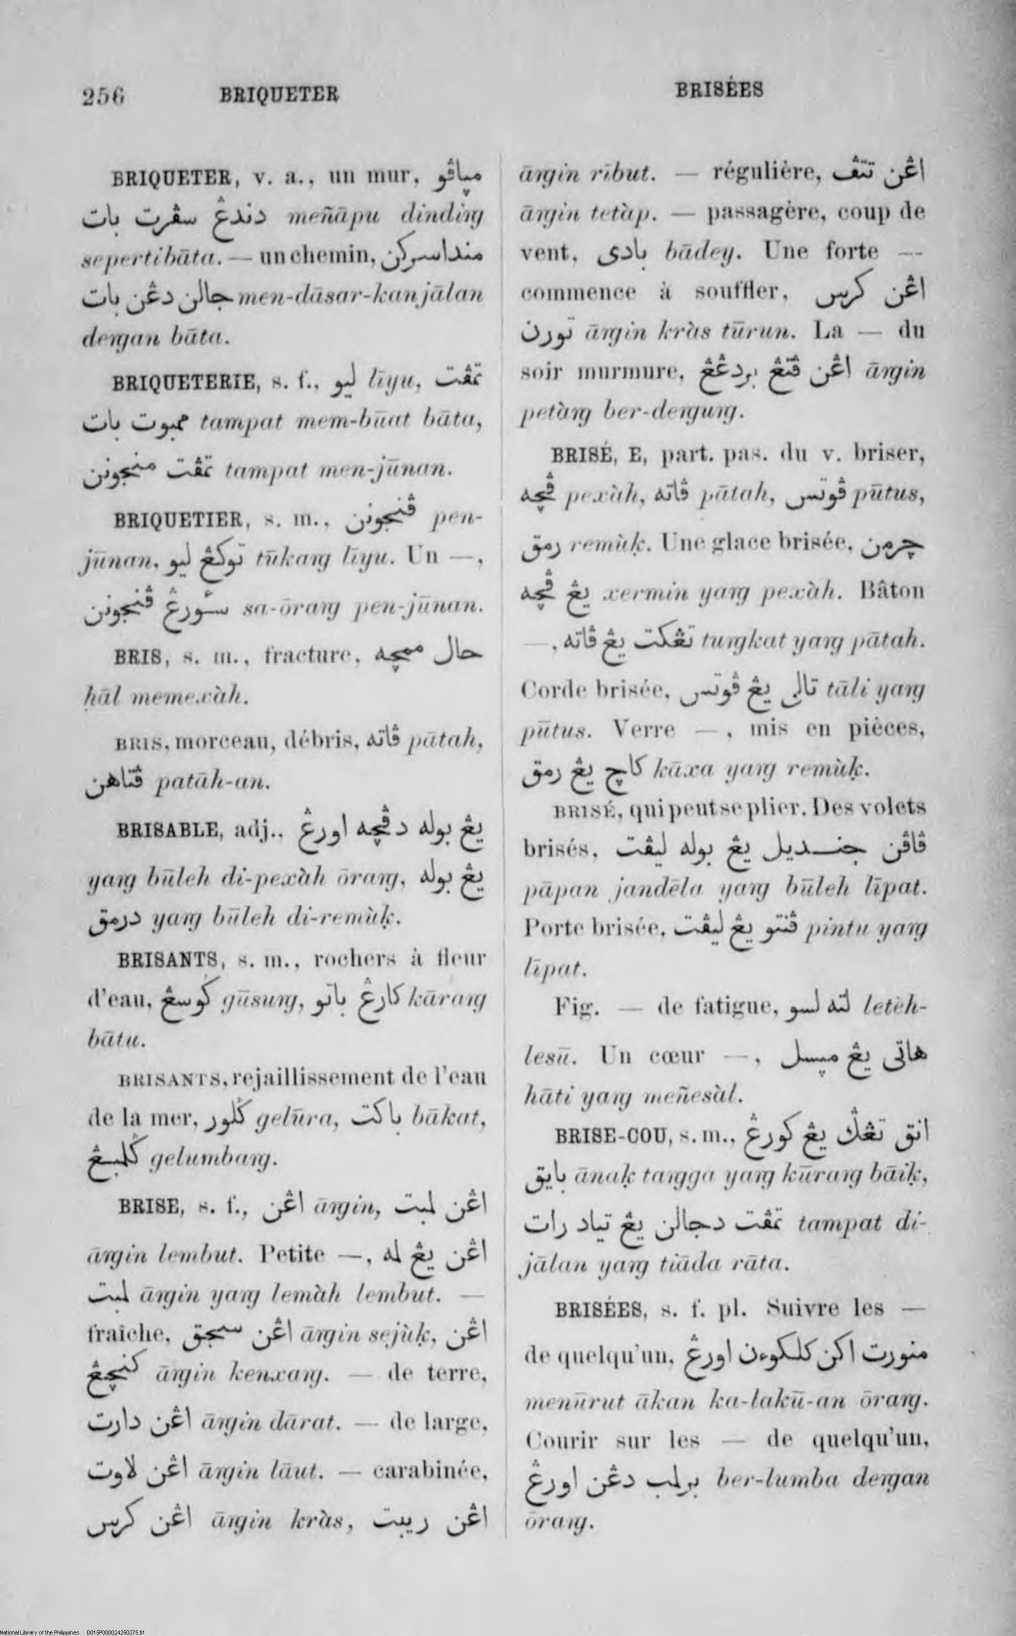 256 BRIQUETER BRISÉES
BRIQUETER, v. a., un mur, مپاڤو
دندڠ سڤرت بات meñāpu dindiŋ
sepertibāta. — un chemin, منداسركن
جالن دڠن بات men-dāsar-kan jālan
deŋan bāta.
BRIQUETERIE, s. f., ليو līyu, تمڤت
ممبوت بات tampat mem-būat bāta,
تمڤت منجونن tampat men-jūnan.
BRIQUETIER, s. m., ڤنجونن pen-
jūnan, توكڠ ليو tūkaŋ līyu. Un —,
سٔورڠ ڤنجونن sa-ōraŋ pen-jūnan.
BRIS, s. m., fracture, حال ممچه
ḥāl memexàh.
BRIS, morceau, débris, ڤاته pātah,
ڤتاهن patāh-an.
BRISABLE, adj., يڠ بوله دڤچه اورڠ
yaŋ būleh di-pexàh ōraŋ, يڠ بوله
درمق yaŋ būleh di-remùḳ.
BRISANTS, s. m., rochers à fleur
d'eau, ڬوسڠ gūsuŋ, كارڠ باتو kāraŋ
bātu.
BRISANTS, rejaillissement de l'eau
de la mer, ڬلور gelūra, باكت bākat,
ڬلمبڠ gelumbaŋ.
BRISE, s. f., اڠن āŋin, اڠن لمبت
āŋin lembut. Petite —, اڠن يڠ له
لمبت āŋin yaŋ lemàh lembut. —
fraîche, اڠن سجق āŋin sejùḳ, اڠن
كنچڠ āŋin kenxaŋ. — de terre,
اڠن دارت āŋin dārat. — de large,
اڠن لاوت āŋin lāut. — carabinée,
اڠن كرس āŋin kràs, اڠن ريبت
āŋin rībut. — régulière, اڠن تتڤ
āŋin tetàp. — passagère, coup de
vent, بادى bādey. Une forte —
commence à souffler, اڠن كرس
تورن āŋin kràs tūrun. La — du
soir murmure, اڠن ڤتڠ بردڠڠ āŋin
petàŋ ber-deŋuŋ.
BRISÉ, E, part. pas. du v. briser,
ڤچه pexàh, ڤاته pātah, ڤوتس pūtus,
رمق remùḳ. Une glace brisée, چرمن
يڠ ڤچه xermin yaŋ pexàh. Bâton
—, تڠكت يڠ ڤاته tuŋkat yaŋ pātah.
Corde brisée, تالى يڠ ڤوتس tāli yaŋ
pūtus. Verre —, mis en pièces,
كاچ يڠ رمق kāxa yaŋ remùḳ.
BRISÉ, qui peut se plier. Des volets
brisés, ڤاڤن جنديل يڠ بوله ليڤت
pāpan jandēla yaŋ būleh līpat.
Porte brisée, ڤنتو يڠ ليڤت pintu yaŋ
līpat.
Fig. — de fatigue, لته لسو letèh-
lesū. Un cœur —, هاتى يڠ مپسل
hāti yaŋ meñesàl.
BRISE-COU, s. m., انق تڠݢ يڠ كورڠ
بايق ānaḳ taŋga yaŋ kūraŋ bāiḳ,
تمڤت دجالن يڠ تياد رات tampat di-
jālan yaŋ tiāda rāta.
BRISÉES, s. f. pl. Suivre les —
de quelqu'un, منورت اكن كلكوءن اورڠ
menūrut ākan ka-lakū-an ōraŋ.
Courir sur les — de quelqu'un,
برلمب دڠن اورڠ ber-lumba deŋan
ōraŋ.
National Library of the Philippines